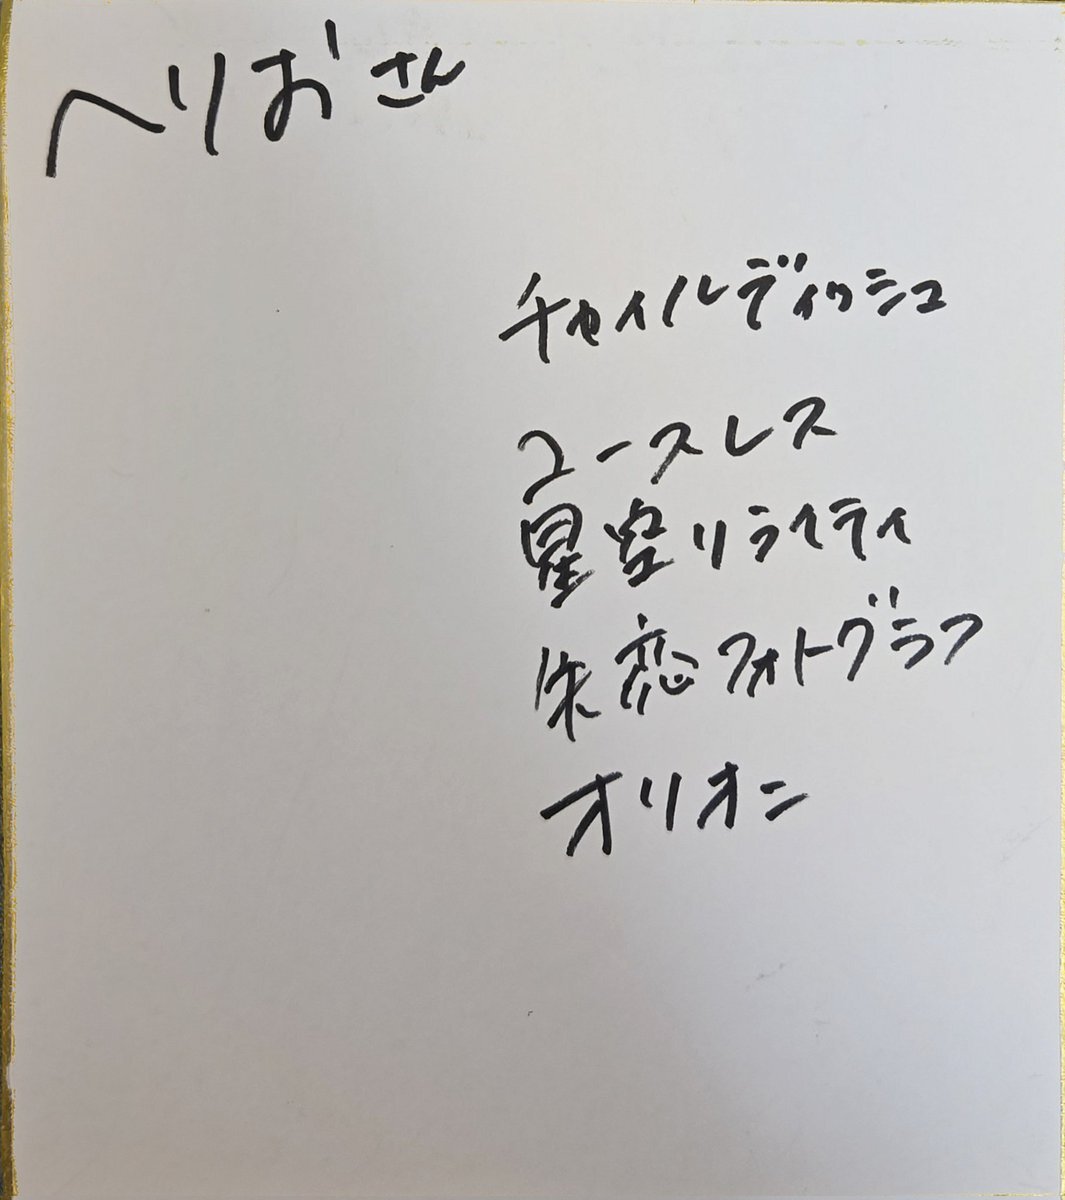 へりおさん
チャイルディッシュ
ユースレス
星空リライティ
朱恋フォトグラフ
オリオン